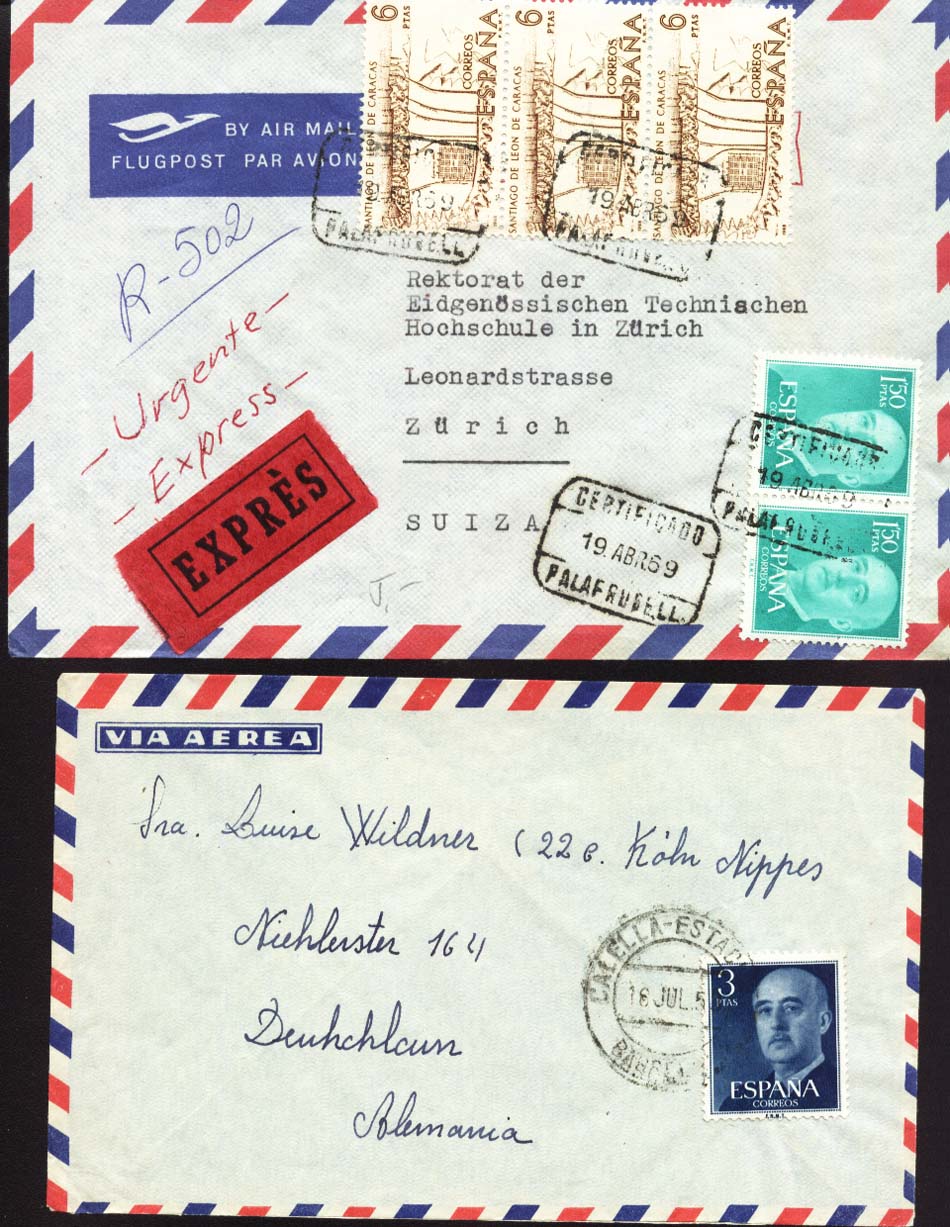 6 PTAS
SANTIAGO DE LEON DE CARACAS
CORREOS
ESPAÑA
6 PTAS
SANTIAGO DE LEON DE CARACAS
CORREOS
ESPAÑA
6 PTAS
SANTIAGO DE LEON DE CARACAS
CORREOS
ESPAÑA
BY AIR MAIL
FLUGPOST PAR AVION
19 ABR 69
PALAFRUGELL
CERTIFICADO
19 ABR 69
PALAFRUGELL
R-502
-Urgente-
-Express-
EXPRÈS
Rektorat der
Eidgenössischen Technischen
Hochschule in Zürich
Leonardstrasse
Zürich
SUIZA
CERTIFICADO
19 ABR 69
PALAFRUGELL
1'50 PTAS
ESPAÑA
CORREOS
CERTIFICADO
19 ABR 69
PALAFRUGELL
1'50 PTAS
ESPAÑA
CORREOS
VIA AEREA
Sra. Luise Wildner (22 c. Köln Nippes
Niehlerster 164
Deuhchlaun
Alemania
CALELLA-ESTAC
16 JUL. 5
BARCEL
3 PTAS
ESPAÑA
CORREOS
F.N.M.T.